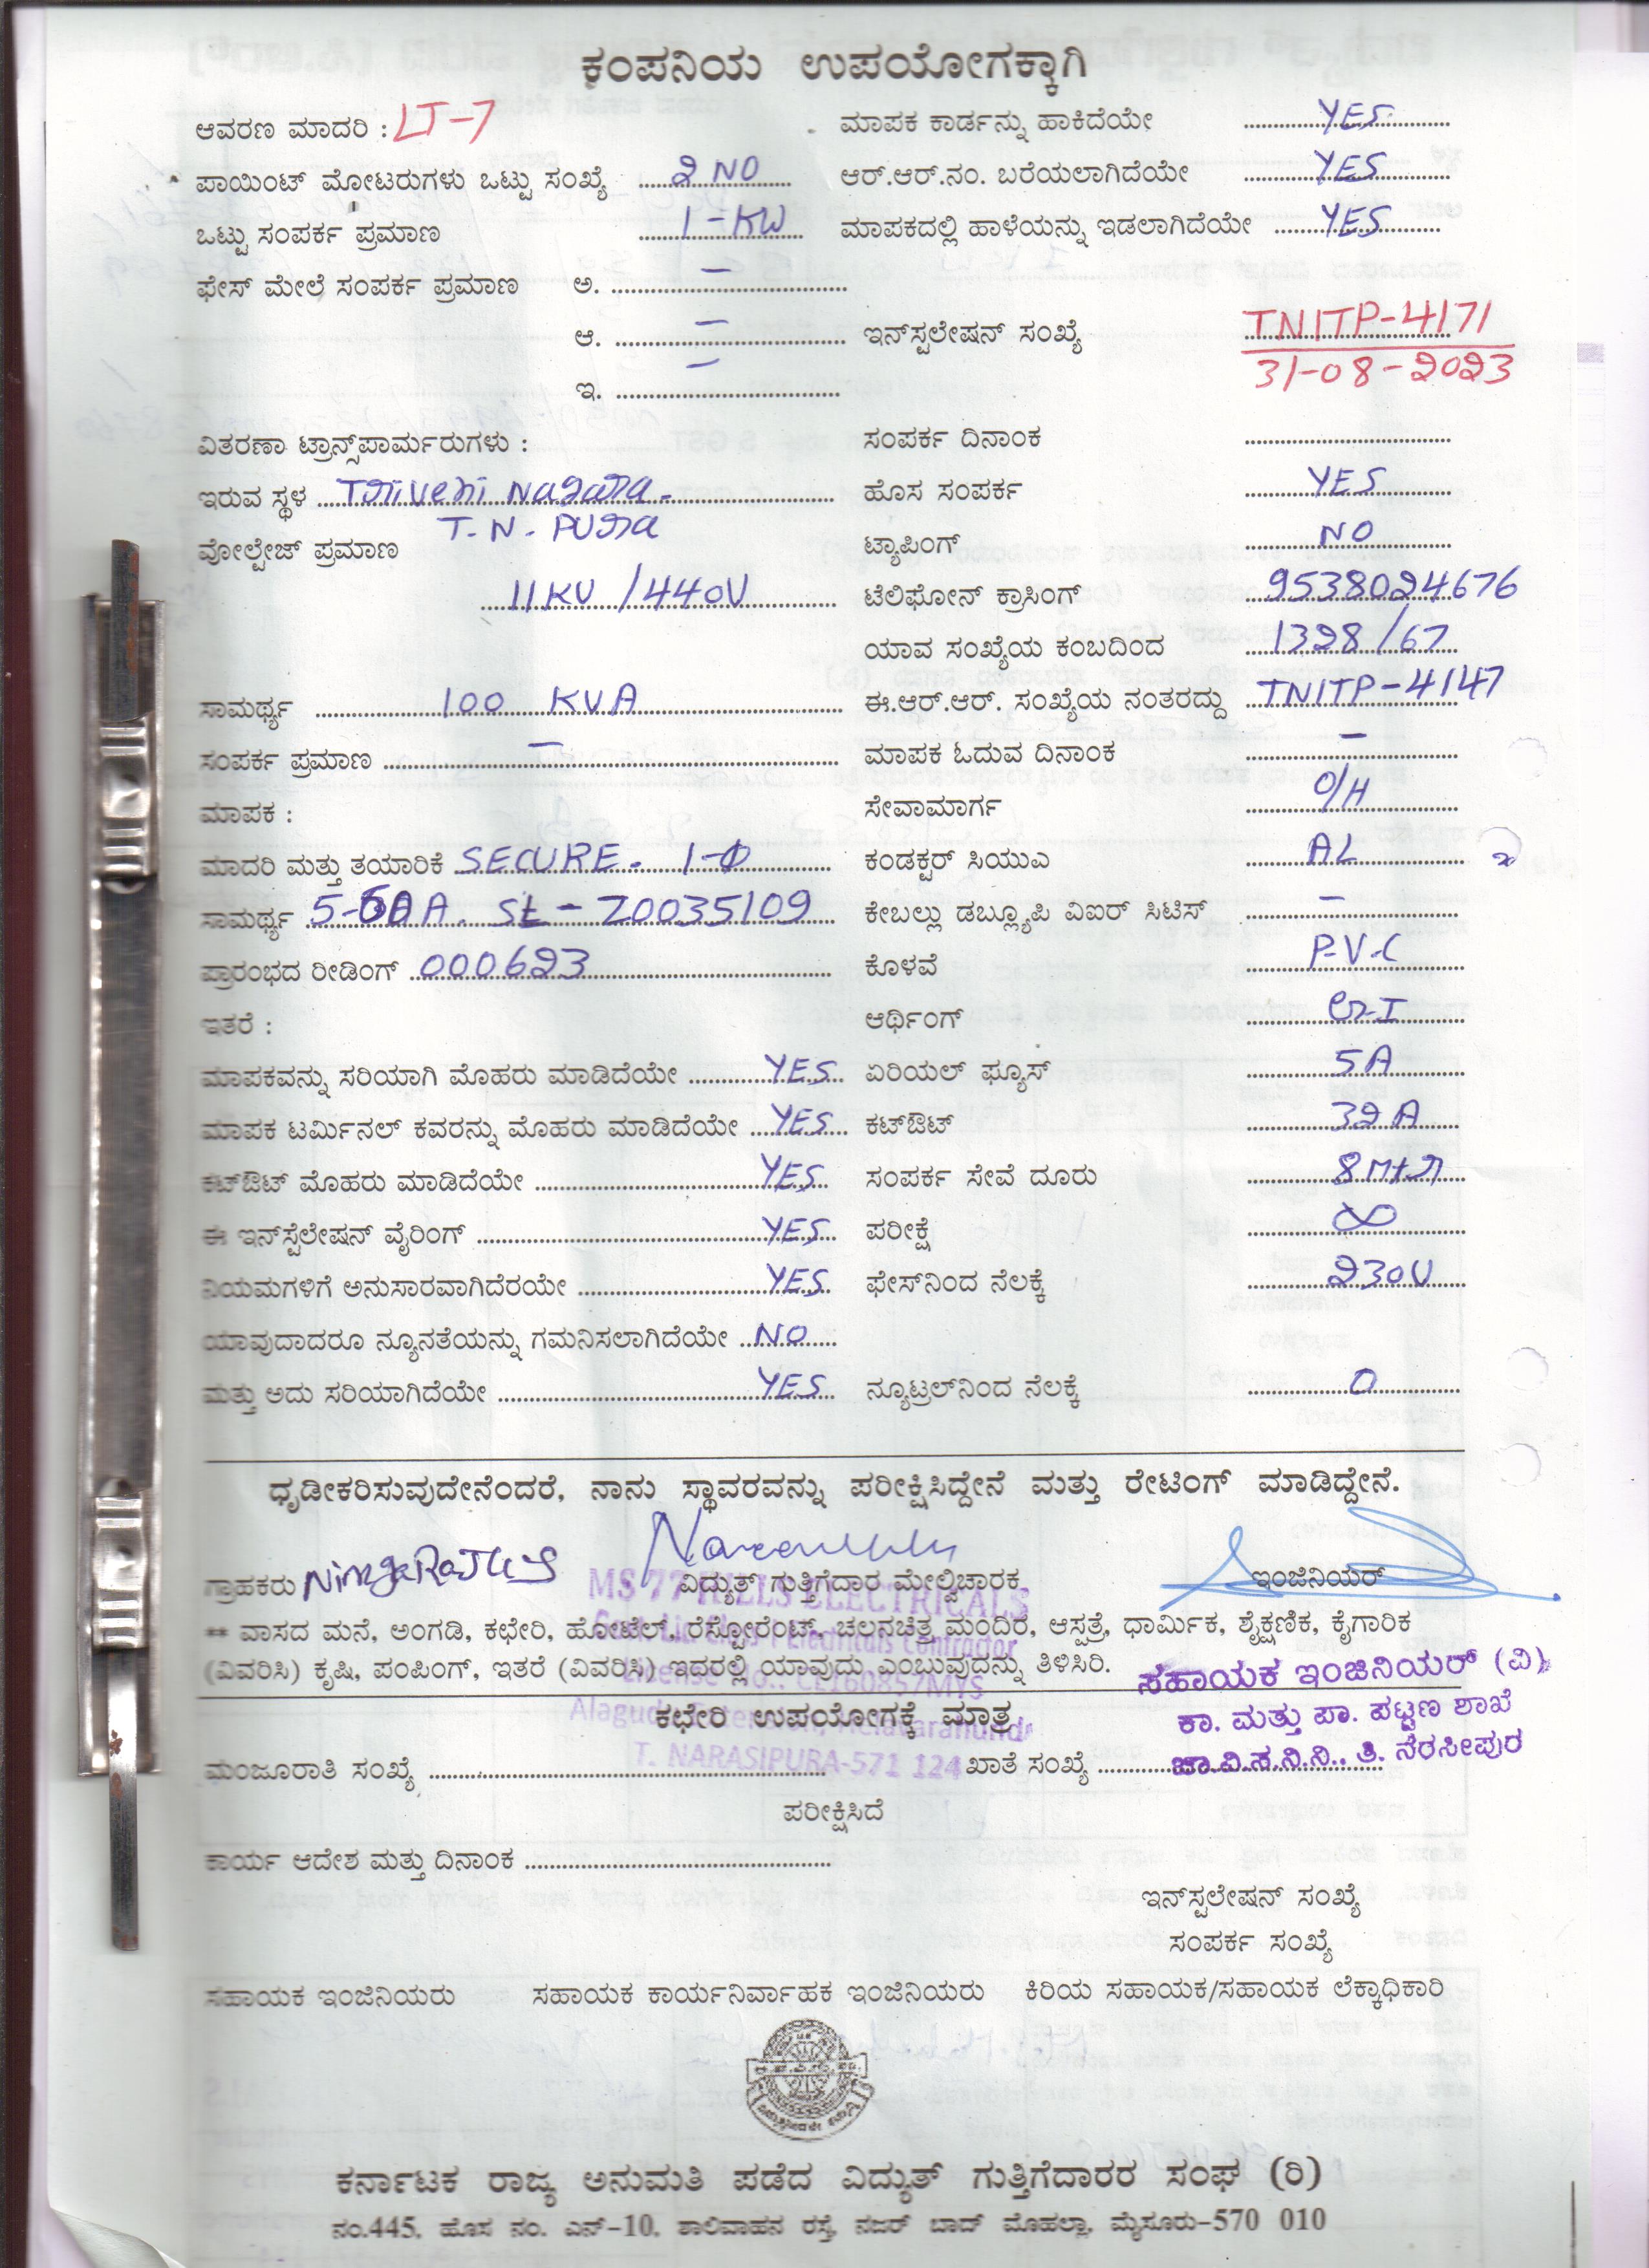 ಕಂಪನಿಯ ಉಪಯೋಗಕ್ಕಾಗಿ
ಆವರಣ ಮಾದರಿ : LT-7 ಮಾಪಕ ಕಾರ್ಡನ್ನು ಹಾಕಿದೆಯೇ YES
ಪಾಯಿಂಟ್ ಮೋಟರುಗಳು ಒಟ್ಟು ಸಂಖ್ಯೆ 2 NO ಆರ್.ಆರ್.ನಂ. ಬರೆಯಲಾಗಿದೆಯೇ YES
ಒಟ್ಟು ಸಂಪರ್ಕ ಪ್ರಮಾಣ 1-KW ಮಾಪಕದಲ್ಲಿ ಹಾಳೆಯನ್ನು ಇಡಲಾಗಿದೆಯೇ YES
ಫೇಸ್ ಮೇಲೆ ಸಂಪರ್ಕ ಪ್ರಮಾಣ ಅ. –
ಆ. – ಇನ್‌ಸ್ಟಲೇಷನ್ ಸಂಖ್ಯೆ TNITP-4171
ಇ. – 31-08-2023
ವಿತರಣಾ ಟ್ರಾನ್ಸ್‌ಪಾರ್ಮರುಗಳು : ಸಂಪರ್ಕ ದಿನಾಂಕ
ಇರುವ ಸ್ಥಳ Triveni Nagara - ಹೊಸ ಸಂಪರ್ಕ YES
T. N. Pura
ವೋಲ್ಟೇಜ್ ಪ್ರಮಾಣ ಟ್ಯಾಪಿಂಗ್ NO
11KV / 440V ಟೆಲಿಫೋನ್ ಕ್ರಾಸಿಂಗ್ 9538024676
ಯಾವ ಸಂಖ್ಯೆಯ ಕಂಬದಿಂದ 1328/67
ಸಾಮರ್ಥ್ಯ 100 KVA ಈ.ಆರ್.ಆರ್. ಸಂಖ್ಯೆಯ ನಂತರದ್ದು TNITP-4147
ಸಂಪರ್ಕ ಪ್ರಮಾಣ – ಮಾಪಕ ಓದುವ ದಿನಾಂಕ –
ಮಾಪಕ : ಸೇವಾಮಾರ್ಗ O/H
ಮಾದರಿ ಮತ್ತು ತಯಾರಿಕೆ SECURE - 1-Φ ಕಂಡಕ್ಟರ್ ಸಿಯುಎ AL
ಸಾಮರ್ಥ್ಯ SL - Z0035109 ಕೇಬಲ್ಲು ಡಬ್ಲ್ಯೂಪಿ ವಿಐರ್ ಸಿಟಿಸ್ –
ಪ್ರಾರಂಭದ ರೀಡಿಂಗ್ 000623 ಕೊಳವೆ P-V-C
ಇತರೆ : ಆರ್ಥಿಂಗ್
ಮಾಪಕವನ್ನು ಸರಿಯಾಗಿ ಮೊಹರು ಮಾಡಿದೆಯೇ YES ಏರಿಯಲ್ ಫ್ಯೂಸ್ 5A
ಮಾಪಕ ಟರ್ಮಿನಲ್ ಕವರನ್ನು ಮೊಹರು ಮಾಡಿದೆಯೇ YES ಕಟ್‌ಔಟ್ 32A
ಕಟ್‌ಔಟ್ ಮೊಹರು ಮಾಡಿದೆಯೇ YES ಸಂಪರ್ಕ ಸೇವೆ ದೂರು 8Mtr
ಈ ಇನ್‌ಸ್ಟೆಲೇಷನ್ ವೈರಿಂಗ್ YES ಪರೀಕ್ಷೆ ∞
ನಿಯಮಗಳಿಗೆ ಅನುಸಾರವಾಗಿದೆರಯೇ YES ಫೇಸ್‌ನಿಂದ ನೆಲಕ್ಕೆ 230V
ಯಾವುದಾದರೂ ನ್ಯೂನತೆಯನ್ನು ಗಮನಿಸಲಾಗಿದೆಯೇ NO
ಮತ್ತು ಅದು ಸರಿಯಾಗಿದೆಯೇ YES ನ್ಯೂಟ್ರಲ್‌ನಿಂದ ನೆಲಕ್ಕೆ 0
ಧೃಡೀಕರಿಸುವುದೇನೆಂದರೆ, ನಾನು ಸ್ಥಾವರವನ್ನು ಪರೀಕ್ಷಿಸಿದ್ದೇನೆ ಮತ್ತು ರೇಟಿಂಗ್ ಮಾಡಿದ್ದೇನೆ.
ಗ್ರಾಹಕರು ವಿದ್ಯುತ್ ಗುತ್ತಿಗೆದಾರ ಮೇಲ್ವಿಚಾರಕ ಇಂಜಿನಿಯರ್
MS 77 HILLS ELECTRICALS
** ವಾಸದ ಮನೆ, ಅಂಗಡಿ, ಕಛೇರಿ, ಹೋಟೆಲ್, ರೆಸ್ಟೋರೆಂಟ್, ಚಲನಚಿತ್ರ ಮಂದಿರ, ಆಸ್ಪತ್ರೆ, ಧಾರ್ಮಿಕ, ಶೈಕ್ಷಣಿಕ, ಕೈಗಾರಿಕ
(ವಿವರಿಸಿ) ಕೃಷಿ, ಪಂಪಿಂಗ್, ಇತರೆ (ವಿವರಿಸಿ) ಇದರಲ್ಲಿ ಯಾವುದು ಎಂಬುವುದನ್ನು ತಿಳಿಸಿರಿ.
ಸಹಾಯಕ ಇಂಜಿನಿಯರ್ (ವಿ)
ಕಾ. ಮತ್ತು ಪಾ. ಪಟ್ಟಣ ಶಾಖೆ
ಚಾ.ವಿ.ಸ.ನಿ.ನಿ.. ತಿ. ನೆರಸೀಪುರ
ಕಛೇರಿ ಉಪಯೋಗಕ್ಕೆ ಮಾತ್ರ
T. NARASIPURA-571 124
ಮಂಜೂರಾತಿ ಸಂಖ್ಯೆ ಖಾತೆ ಸಂಖ್ಯೆ
ಪರೀಕ್ಷಿಸಿದೆ
ಕಾರ್ಯ ಆದೇಶ ಮತ್ತು ದಿನಾಂಕ
ಇನ್‌ಸ್ಟಲೇಷನ್ ಸಂಖ್ಯೆ
ಸಂಪರ್ಕ ಸಂಖ್ಯೆ
ಸಹಾಯಕ ಇಂಜಿನಿಯರು ಸಹಾಯಕ ಕಾರ್ಯನಿರ್ವಾಹಕ ಇಂಜಿನಿಯರು ಕಿರಿಯ ಸಹಾಯಕ/ಸಹಾಯಕ ಲೆಕ್ಕಾಧಿಕಾರಿ
ಕರ್ನಾಟಕ ರಾಜ್ಯ ಅನುಮತಿ ಪಡೆದ ವಿದ್ಯುತ್ ಗುತ್ತಿಗೆದಾರರ ಸಂಘ (ರಿ)
ನಂ.445, ಹೊಸ ನಂ. ಎನ್-10, ಶಾಲಿವಾಹನ ರಸ್ತೆ, ನಜರ್ ಬಾದ್ ಮೊಹಲ್ಲಾ, ಮೈಸೂರು-570 010